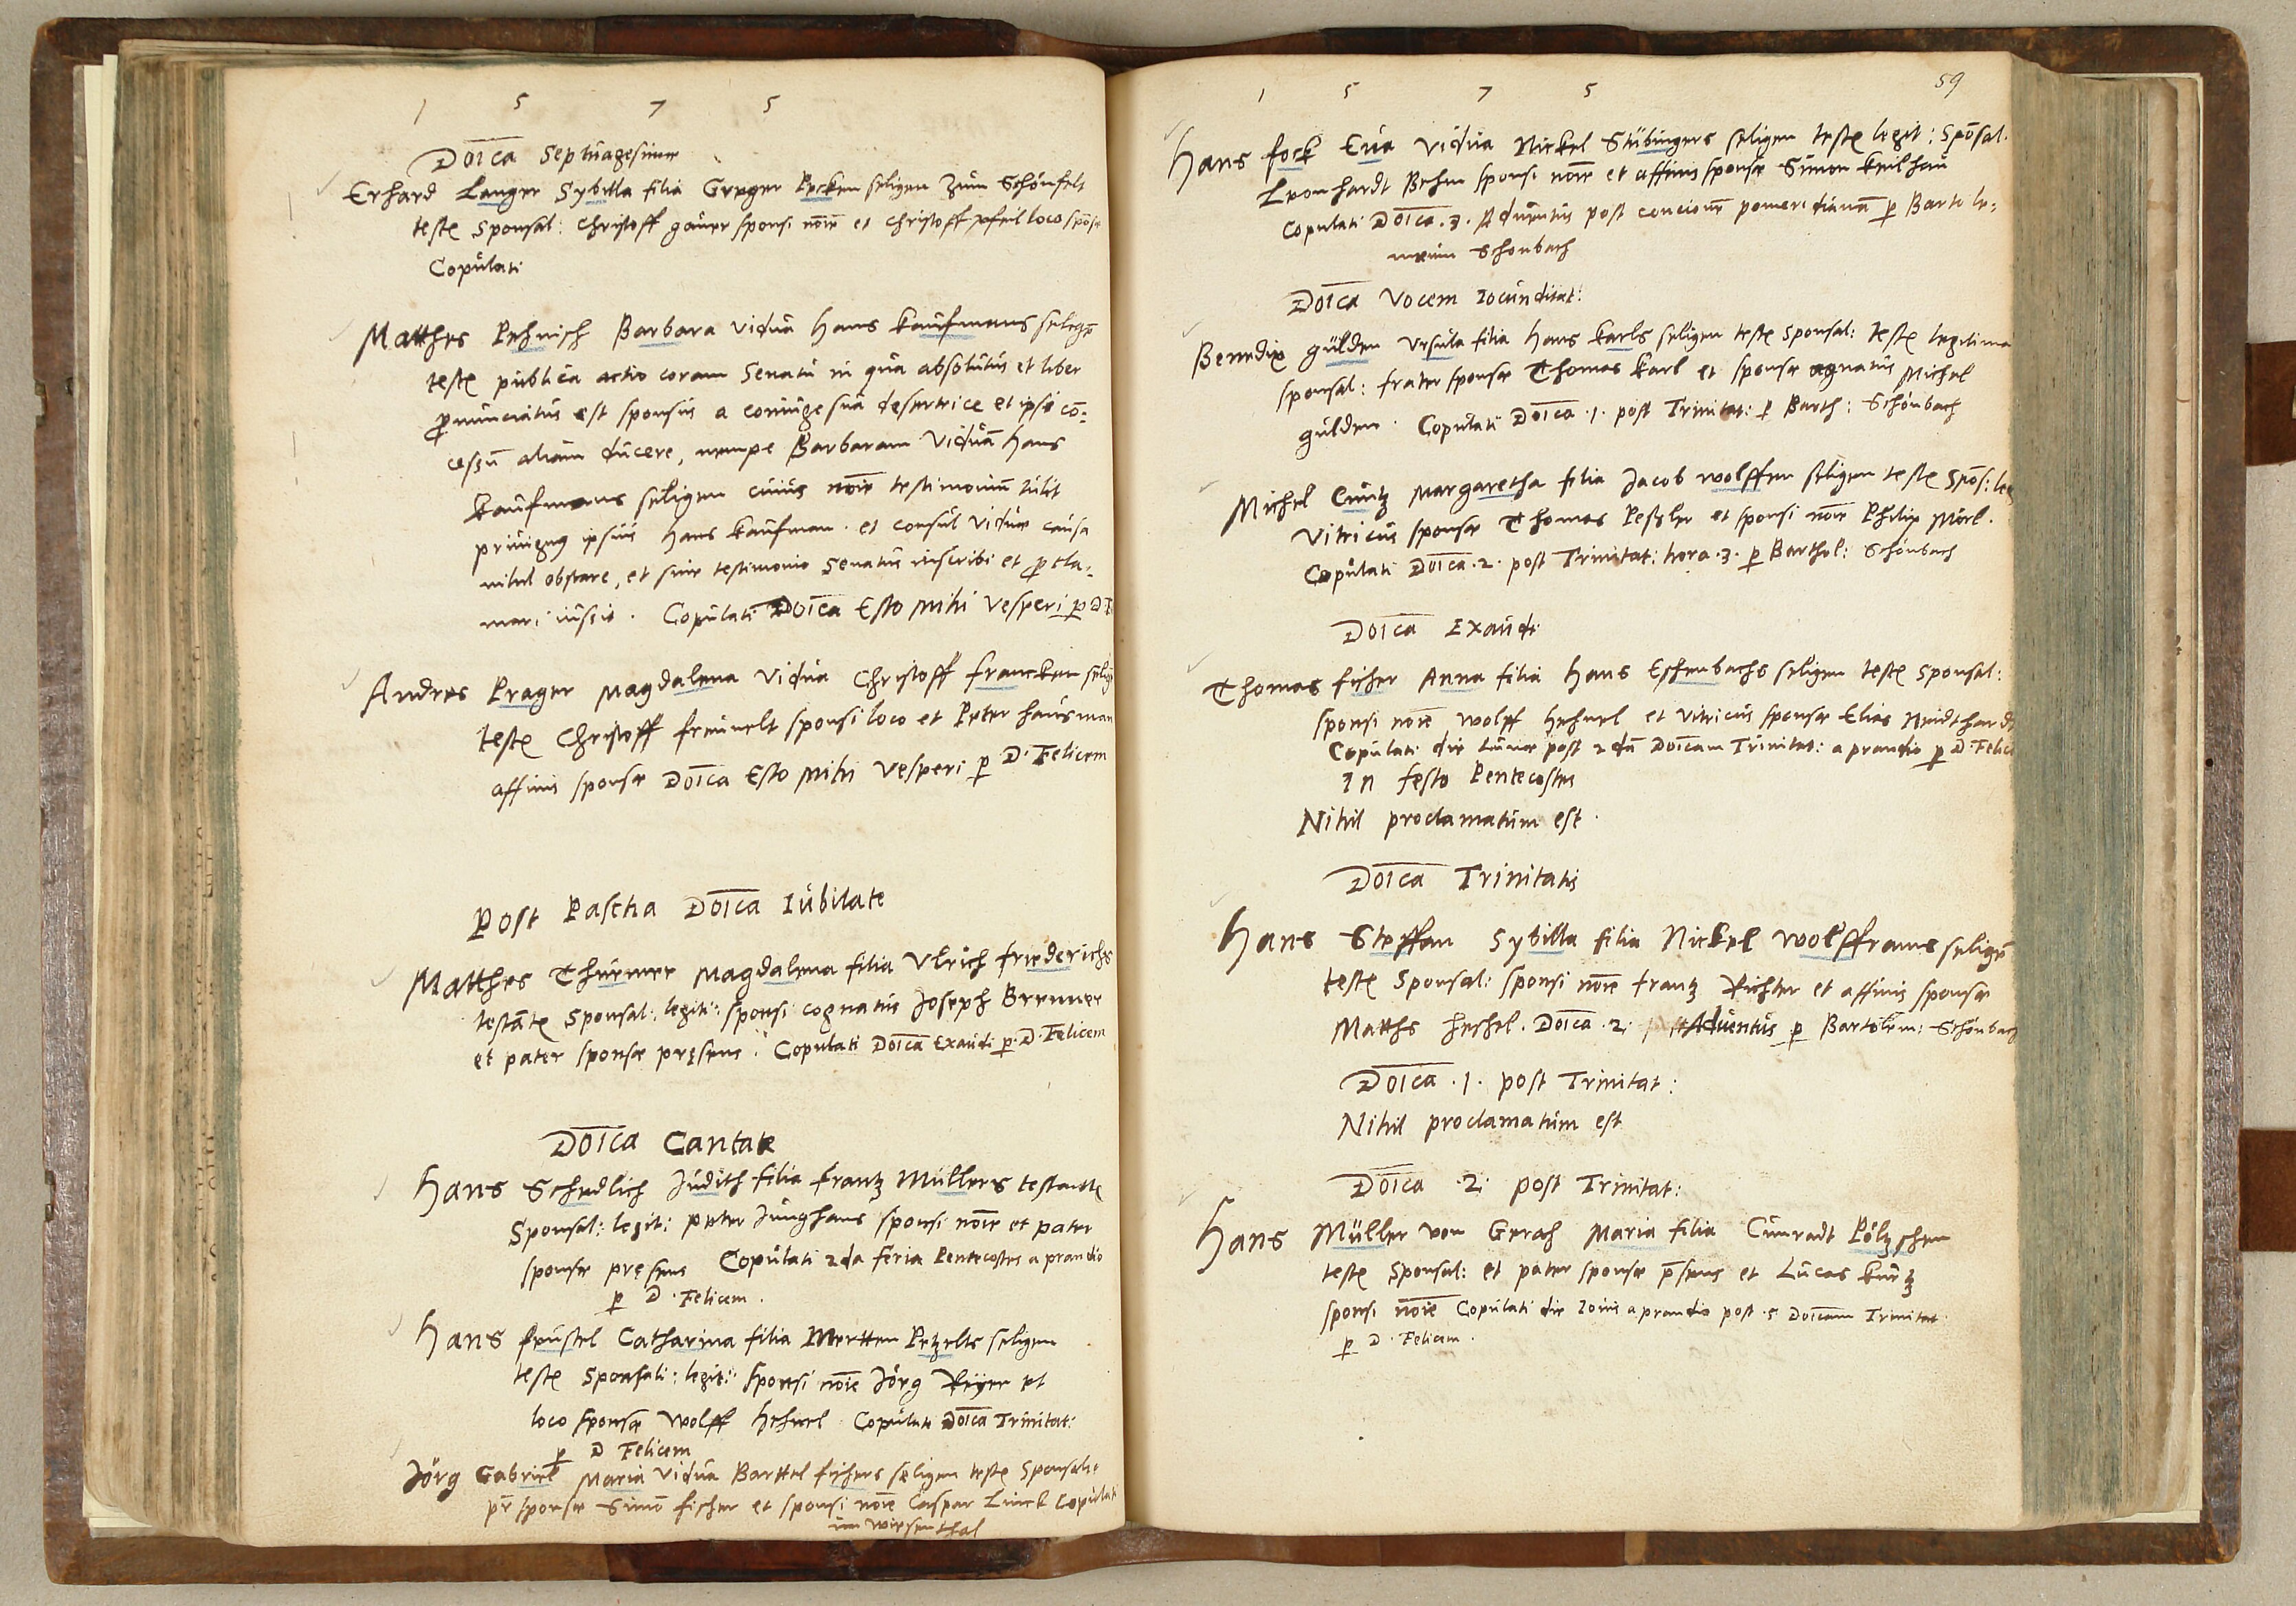 1 5 7 5
Doica Septuagesimae
Erhard Langer Sybilla filia Greger Pecken seligen zum Schönfelt
teste Sponsal: Christoff ganer sponsi noie et Christoff pfeil loco spōsae
Copulati
Matthes Pehnisch Barbara vidua Hans Kaufmans seligē
teste publica actio coram Senatu in qua absolutus et liber
pronunciatus est sponsus a coniuge sua desertrice et ipsi cō-
cessū aliam ducere, nempe Barbaram viduā Hans
Kaufmans seligen cuius noie testimoniū tulit
privignus ipsius Hans Kaufman. et consul viduae causa
nihil obstare, et sine testimonio Senatus inscribi et procla-
mari iussit. Copulati Doica Esto mihi vesperi p D
Andres Prager Magdalena vidua Christoff francken
teste Christoff sponsi loco et Peter Hausman
affinis sponsae Doica Esto mihi vesperi p D. Felicem
Post Pascha Doica Iubilate
Matthes Thürmer Magdalena filia Ulrich friederichs
testāte Sponsal: legiti: sponsi cognatus Joseph Brenner
et pater sponsae pręsens. Copulati Doica Exaudi p. D. Felicem
Doica Cantate
Hans Schedlich Judith filia frantz Müllers testante
Sponsal: legit: peter Junghans sponsi noie et pater
sponsae pręsens Copulati 2da feria Pentecostes a prandio
p D. Felicem.
Hans feustel Catharina filia Mertten Petzelts seligen
teste Sponsali: legit: sponsi noie Jörg et
loco sponsae Wolff Hehnel Copulati Doica Trinitat:
p D Felicem
Jörg Gabriel Maria vidua Barttel fischers seligen teste Sponsali:
pr sponsae Simō fischer et sponsi noie Caspar Linck Copulati
im Wiesenthal
59
1 5 7 5
Hans fock Eva vidua Nickel Stübingers seligen teste legit: Spōsal.
Leonhardt Behm sponsi noie et affinis sponsae Simon Keilhau
Copulati Doica .3. Adventus post concionē pomeridianā p Bartole-
meum Schonbach
Doica Vocem Iocunditat:
Benedix gülden Ursula filia Hans Karls seligen teste Sponsal: teste legitima
sponsal: frater sponsae Thomas Karl et sponsae agnatus Michel
gülden. Copulati Doica .1. post Trinitat: p Barth: Schönbach
Michel Cuntz Margaretha filia Jacob wolffen seligen teste Spōs: leg
Vitricus sponsae Thomas Peßler et sponsi noie Philip Mörl.
Copulati Doica .2. post Trinitat: hora .3. p Barthol: Schönbach
Doica Exaudi
Thomas fischer Anna filia Hans Eschenbachs seligen teste Sponsal:
sponsi noie Wolff Hehnel et vitricus sponsae Elias Neidthardt
Copulati die Lunae post 2dā Doicam Trinitat: a prandio p D. Felicem
In festo Pentecostes
Nihil proclamatum est.
Doica Trinitatis
Hans Steffan Sybilla filia Nickel Wolfframs seligē
teste Sponsal: sponsi noie frantz Richter et affinis sponsae
Matths Heckel. Doica .2. Adventus p Bartolem: Schönbach
Doica .1. post Trinitat:
Nihil proclamatum est
Doica .2. post Trinitat:
Hans Müller von Gerah Maria filia Cunradt Pöltzschen
teste Sponsal: et pater sponsae p̄sens et Lucas Kurtz
sponsi noie Copulati die Iovis a prandio post .5 Doicam Trinitat
p D. Felicem.